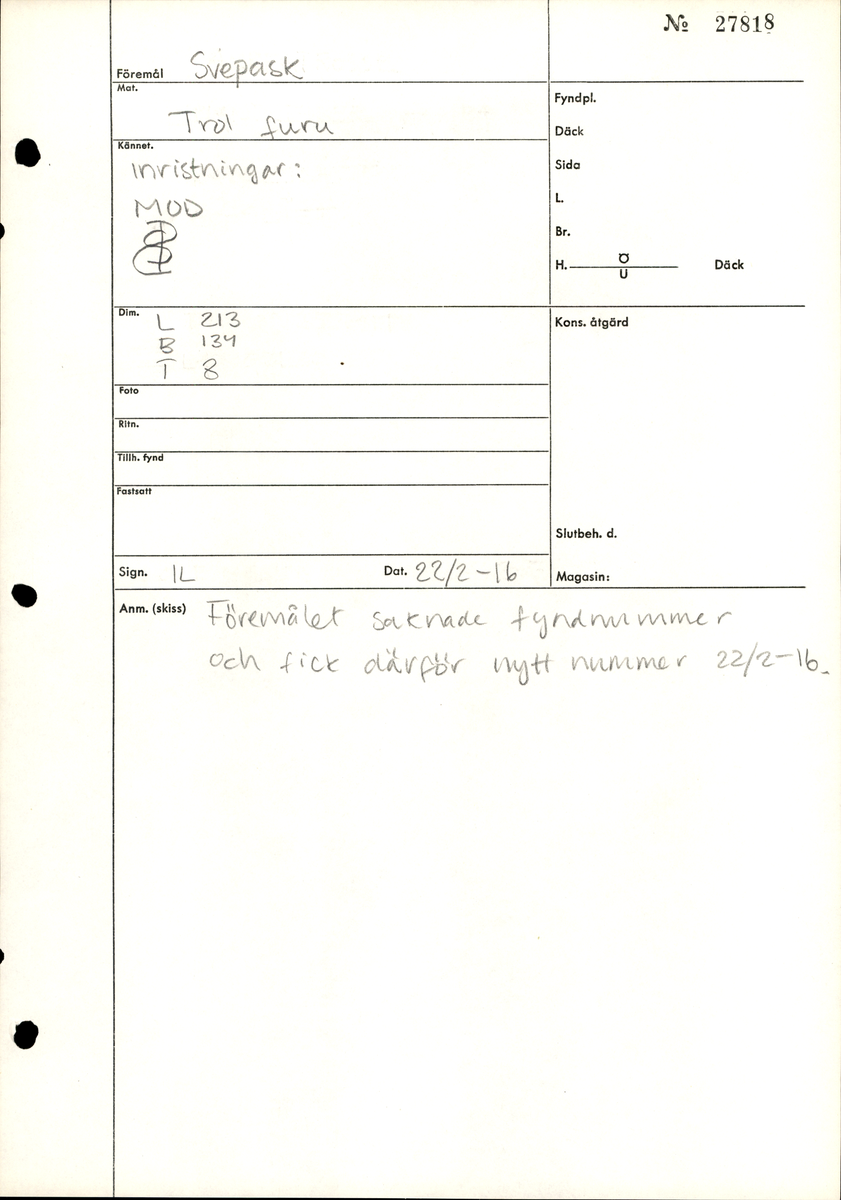 № 27818
Föremål Svepask
Mat.
Trol furu
Kännet.
Inristningar:
MOD
Fyndpl.
Däck
Sida
L.
Br.
H. Ö Däck
U
Dim.
L 213
B 134
T 8
Kons. åtgärd
Foto
Ritn.
Tillh. fynd
Fastsatt
Slutbeh. d.
Sign. IL Dat. 22/2-16
Magasin:
Anm. (skiss) Föremålet saknade fyndnummer
och fick därför nytt nummer 22/2-16.